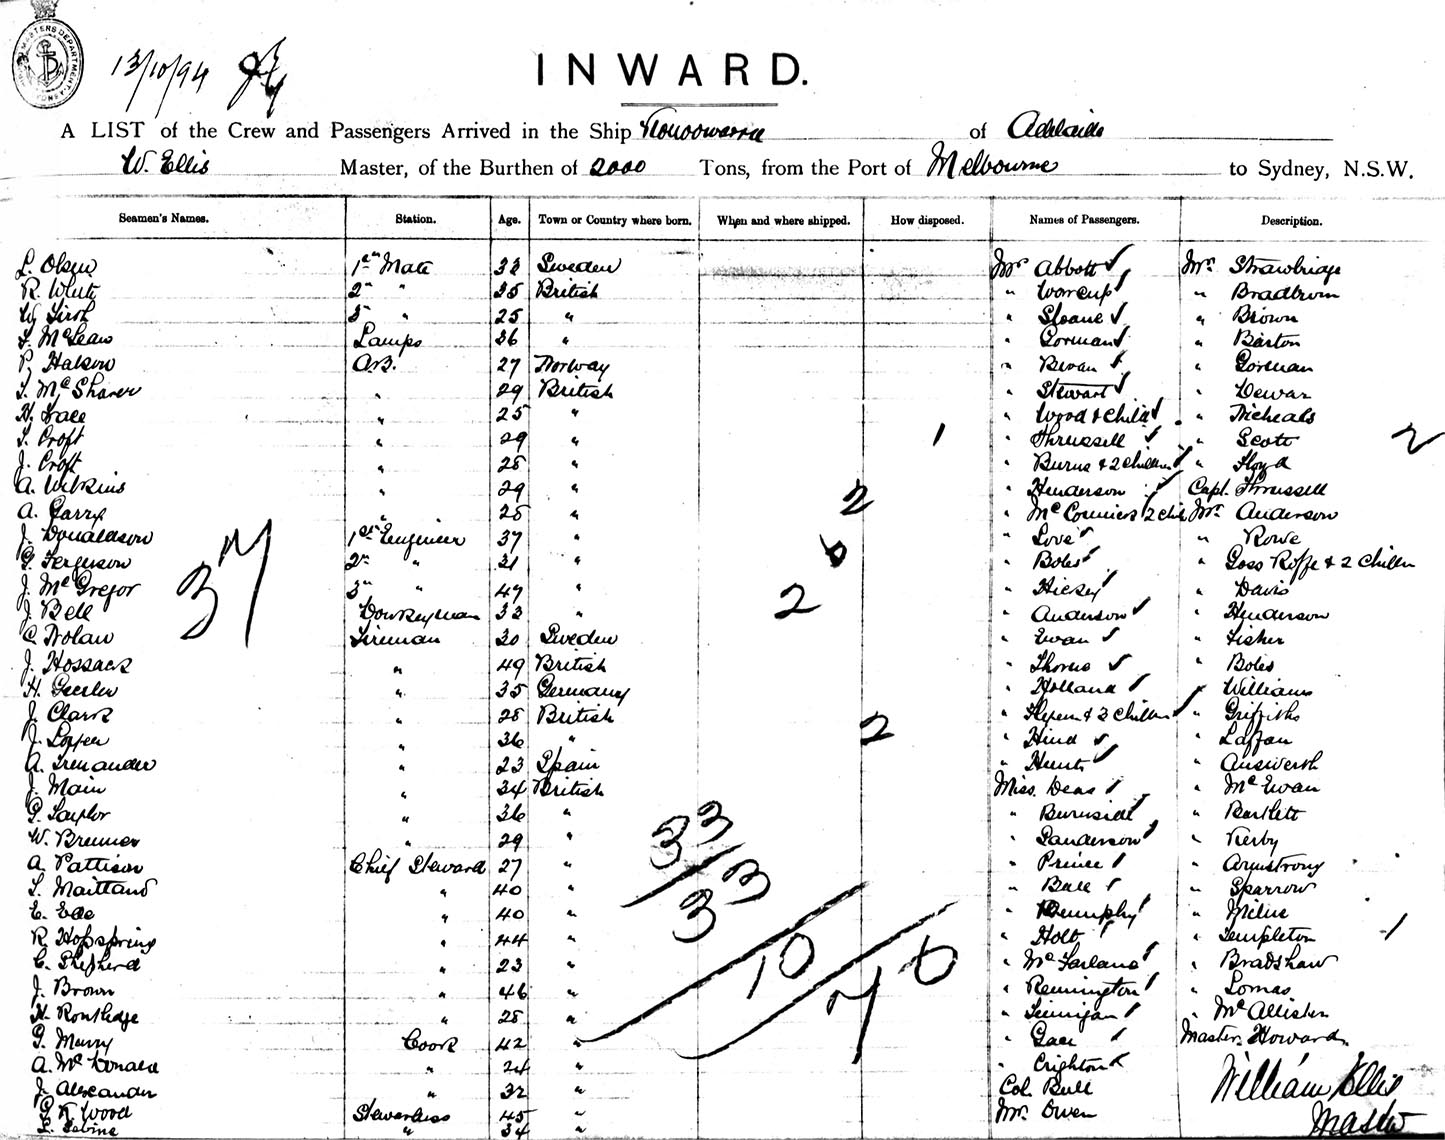 13/10/94
INWARD.
A LIST of the Crew and Passengers Arrived in the Ship of Adelaide
W. Ellis Master, of the Burthen of 2000 Tons, from the Port of Melbourne to Sydney, N.S.W.
Seamen's Names. Station. Age. Town or Country where born. When and where shipped. How disposed. Names of Passengers. Description.
L. Olsen 1st Mate 32 Sweden Mrs Abbott Mr. Strawbridge
R. White 2nd " 35 British " Worcup " Bradbrun
W. 3rd " 25 " " Sloane " Brown
McLean Lamps 36 " " Gorman " Barton
P. Halson A.B. 27 Norway " Bevan " Gorman
McSharer " 29 British " Stewart " Dewar
H. " 25 " " Wood & Child " Nicheals
Croft " 29 " 1 " Thrussell " Scott 2
J. Croft " 28 " " Burns & 2 Children " Floyd
A. Wilkins " 29 " 2 " Henderson Capt. Thrussell
A. Garry " 25 " " 2 Mr. Anderson
J. Donaldson 1st Engineer 37 " " Love " Rowe
G. Fergerson 2nd " 31 " " Boles " & 2 Chilln
J. McGregor 3rd " 47 " " Hickey " Davis
37
J. Bell Donkeyman 32 " 2 " Anderson " Henderson
C. Nolan Fireman 30 Sweden " Ewan " Fisher
J. Hossack " 49 British " " Boles
H. " 35 Germany " Holland " Williams
J. Clark " 28 British " & 2 Chilln " Griffiths
J. " 36 " 2 " Hind " Laffan
A. " 23 Spain " Hunt " Answorth
J. Main " 34 British Miss. Deas " McEwan
G. Taylor " 36 " " Burnside " Bartlett
W. Brenner " 29 " 33 " Sanderson " Kerby
A. Pattison Chief Steward 27 " " Prince " Armstrong
Maitland " 40 " 33 " Ball " Sparrow
E. " 40 " " " Milne
R. Hopspring " 44 " " Holt " Templeton 1
C. Shepherd " 23 " 10 6 " McFarland " Bradshaw
J. Brown " 46 " 7 " Rennington " Lomas
H. Routledge " 28 " " Finnigan " McAllister
G. Murry Cook 42 " " Master. Howard.
A. McDonald " 24 " " Crighton
J. Alexander " 32 " Col. Bull William Ellis
G. K. Wood Stewardess 45 " Mr. Owen Master
L. Sabine " 34 "